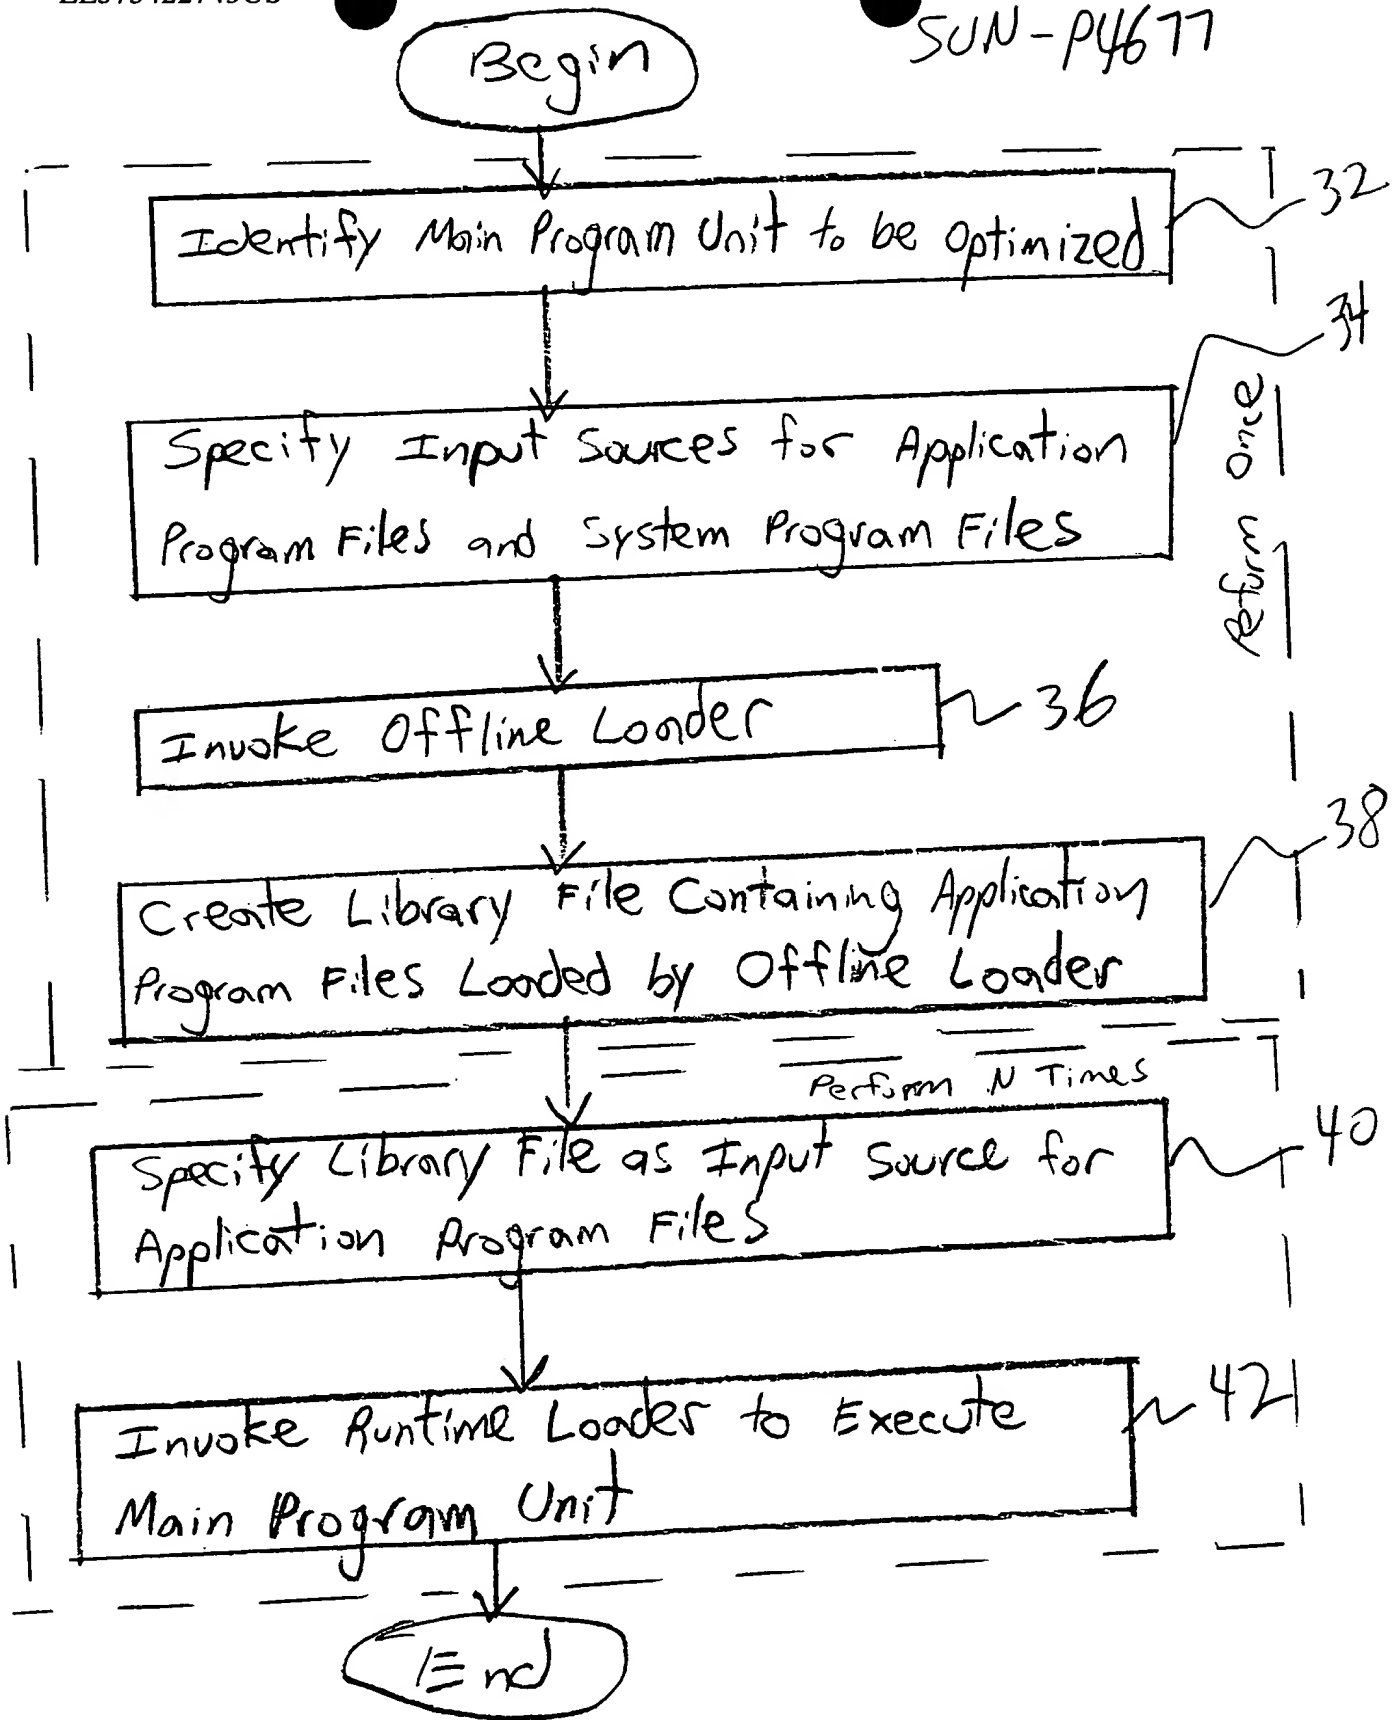 SUN-P4677
Begin
32
Identify Main Program Unit to be Optimized
34
Specify Input Sources for Application
Program Files and System Program Files
Perform Once
Invoke Offline Loader
36
38
Create Library File Containing Application
Program Files Loaded by Offline Loader
Perform N Times
40
Specify Library File as Input Source for
Application Program Files
42
Invoke Runtime Loader to Execute
Main Program Unit
End